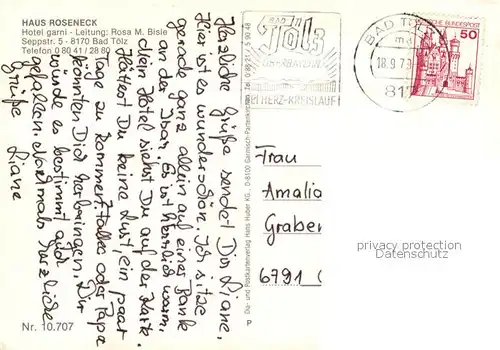 HAUS ROSENECK
Hotel garni - Leitung: Rosa M. Bisle
Seppstr. 5 - 8170 Bad Tölz
Telefon 0 80 41 / 28 80
Herzliche Grüße sendet Dir Liane.
Hier ist es wunderschön. Ich sitze
gerade ganz allein auf einer Bank
an der Isar. Es ist herrlich warm.
Mein Hotel siehst Du auf der Karte.
Hättest Du keine Lust, ein paar
Tage zu kommen? oder Papa
könnten Dich herbringen. Dir
würde es bestimmt auch
gefallen. Nochmals herzliche
Grüße Liane
Nr. 10.707
Dia- und Postkartenverlag Hans Huber KG., D-8100 Garmisch-Partenkirchen
P
BAD
Tölz
OBERBAYERN
BEI HERZ-KREISLAUF
BAD TÖLZ
18.9.79
DEUTSCHE BUNDESPOST
50
Frau
Amalia
Graber
6791
privacy protection
Datenschutz